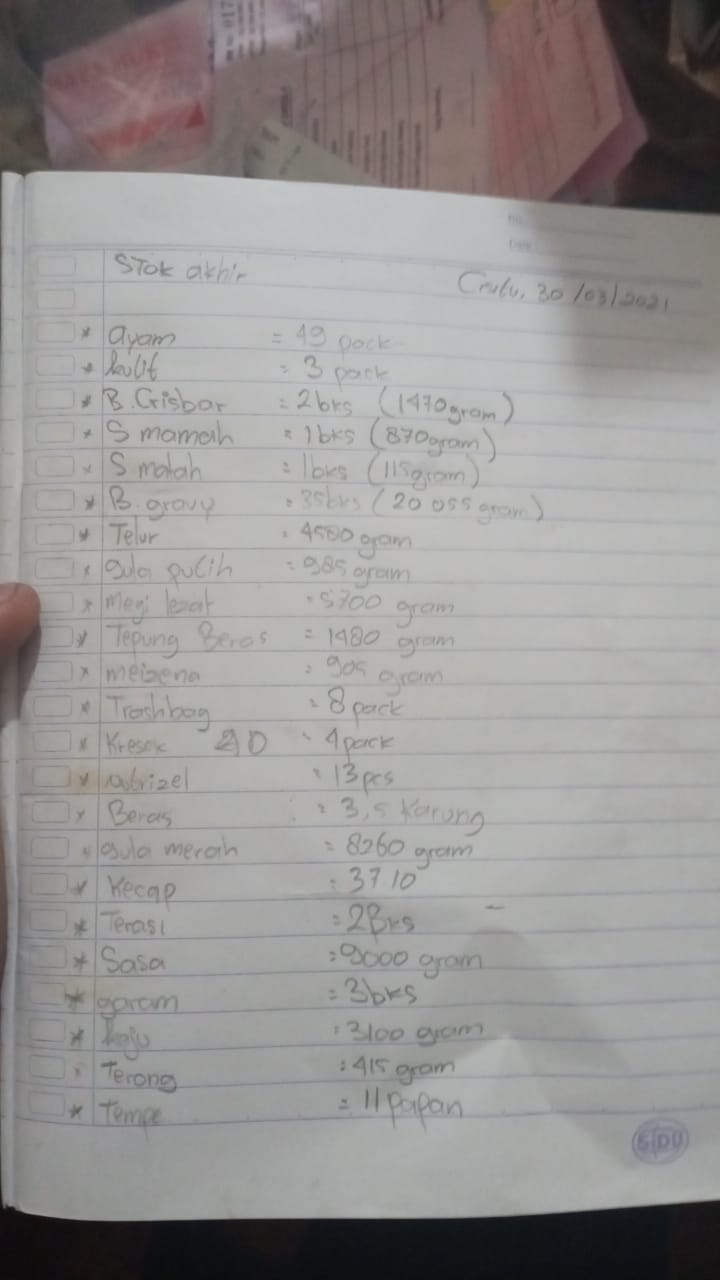 Stok akhir
30/03/2021
* ayam = 49 pack
* kulit = 3 pack
* B. Crisbar = 2bks (1470gram)
* S mamah = 1bks (870gram)
* S matah = 1bks (115gram)
* B. gravy = 35bks (20 055 gram)
* Telur = 4580 gram
* gula putih = 985 gram
* megi lezat = 5700 gram
* Tepung Beras = 1480 gram
* meizena = 905 gram
* Trashbag = 8 pack
* Kresek 40 = 4 pack
* = 13 pcs
* Beras = 3,5 Karung
* gula merah = 8260 gram
* Kecap = 3710
* Terasi = 2Bks
* Sasa = 9000 gram
* garam = 3bks
* keju = 3100 gram
* Terong = 415 gram
* Tempe = 11 papan